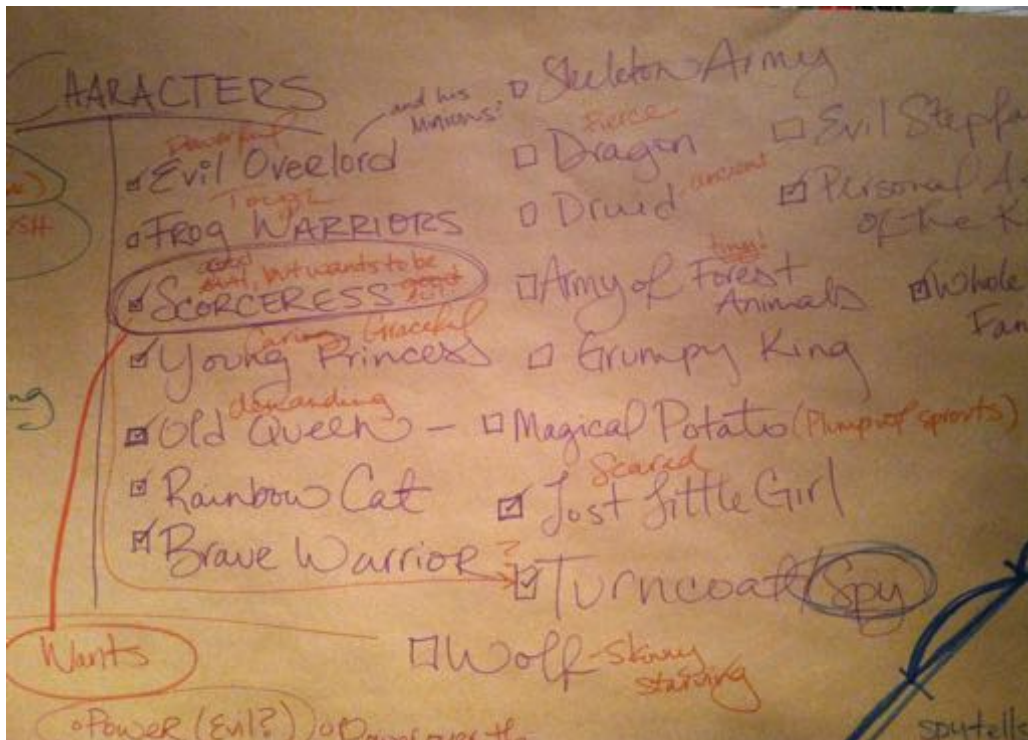 CHARACTERS
and his
minions?
Powerful
Evil Overlord
Tough
FROG WARRIORS
good
evil, but wants to be
good
SCORCERESS
Caring Graceful
Young Princess
demanding
Old Queen -
Rainbow Cat
Brave Warrior
?
Skeleton Army
Fierce
Dragon
Druid - ancient
tiny!
Army of Forest
Animals
Grumpy King
Magical Potato (Plump w/ sprouts)
Scared
Lost Little Girl
Turncoat/Spy
Wolf - skinny
starving
Evil Stepfa
Personal A
of the K
Whole
Fam
Wants
Power (Evil?)
Power over the
spy tells